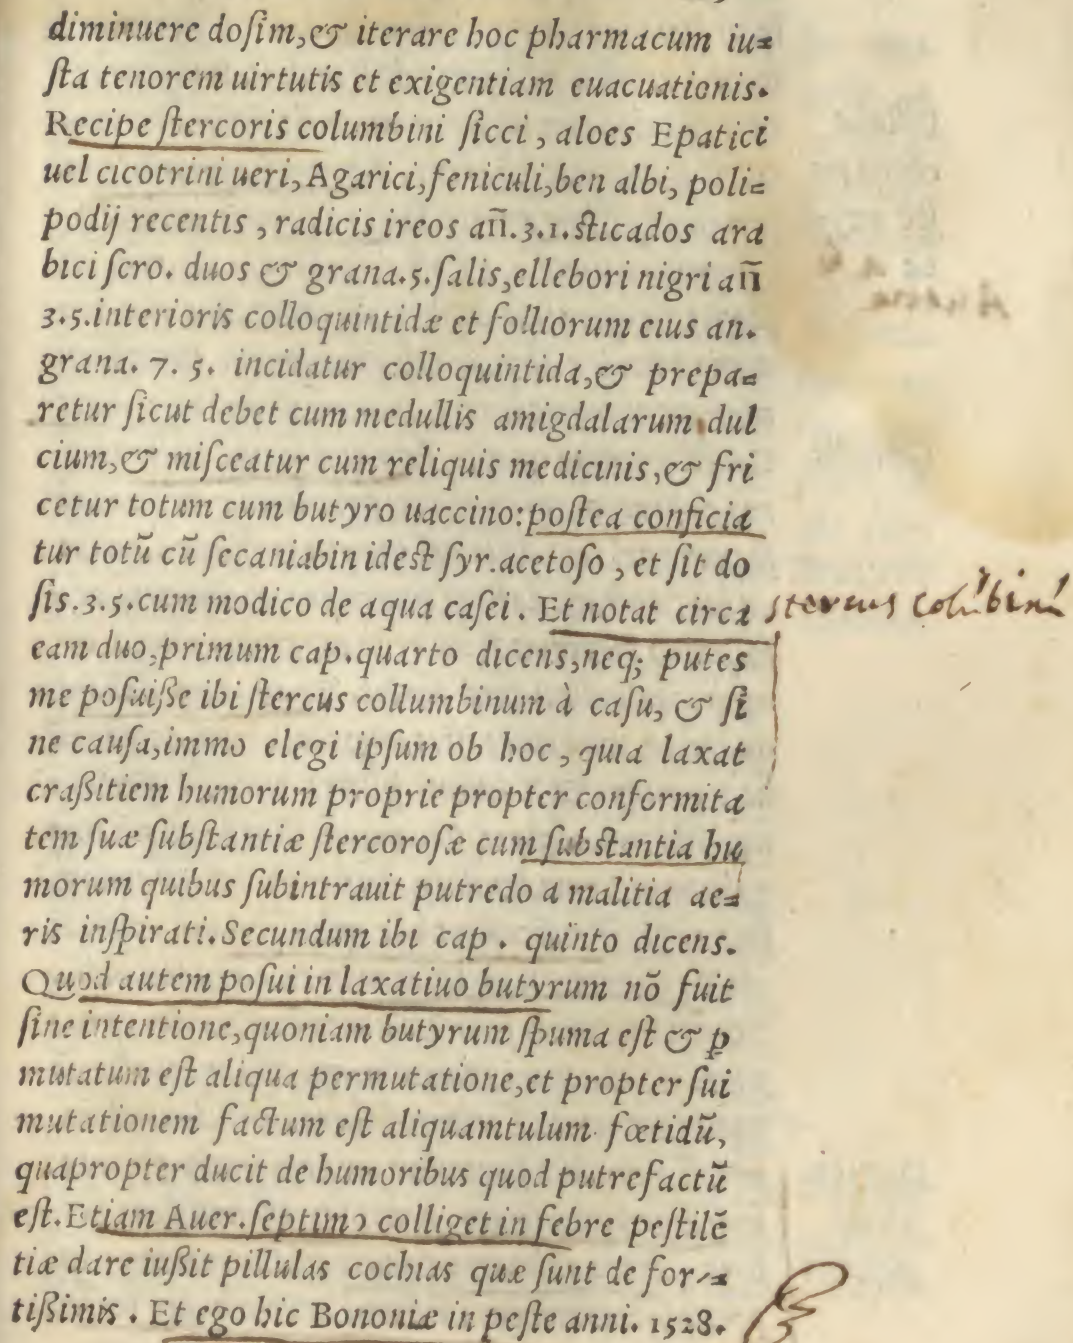 diminuere dosim, & iterare hoc pharmacum iu=
sta tenorem uirtutis et exigentiam euacuationis.
Recipe stercoris columbini sicci, aloes Epatici
uel cicotrini ueri, Agarici, feniculi, ben albi, poli=
podij recentis, radicis ireos añ.3.1. sticados ara
bici scro. duos & grana.5. salis, ellebori nigri añ
3.5. interioris colloquintidæ et folliorum eius an.
grana. 7. 5. incidatur colloquintida, & prepa=
retur sicut debet cum medullis amigdalarum dul
cium, & misceatur cum reliquis medicinis, & fri
cetur totum cum butyro uaccino: postea conficia
tur totū cū secaniabin idest syr. acetoso, et sit do
sis.3.5. cum modico de aqua casei. Et notat circa
stercus colūbinū
eam duo, primum cap. quarto dicens, neq; putes
me posuiße ibi stercus collumbinum à casu, & si
ne causa, immo elegi ipsum ob hoc, quia laxat
craßitiem humorum proprie propter conformita
tem suæ substantiæ stercorosæ cum substantia hu
morum quibus subintrauit putredo a malitia ae=
ris inspirati. Secundum ibi cap. quinto dicens.
Quod autem posui in laxatiuo butyrum nō fuit
sine intentione, quoniam butyrum spuma est & ꝑ
mutatum est aliqua permutatione, et propter sui
mutationem factum est aliquamtulum fœtidū,
quapropter ducit de humoribus quod putrefactū
est. Etiam Auer. septimo colliget in febre pestilē
tiæ dare iußit pillulas cochias quæ sunt de for=
tißimis. Et ego hic Bononiæ in peste anni. 1528.